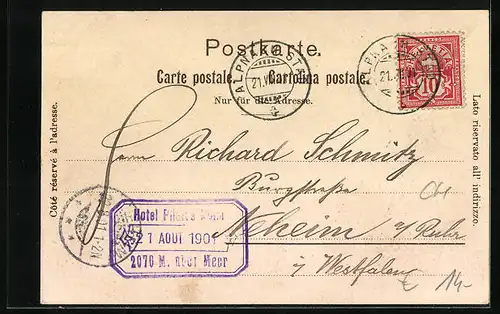 Postkarte.
Carte postale. Cartolina postale.
Nur für die Adresse.
Côté réservé à l'adresse.
Lato riservato all' indirizzo.
ALPNACHSTAD
21.VIII
10
Herrn Richard Schmitz
Burgstraße
Neheim a/Ruhr
i/ Westfalen
CH
Hotel Pilatus Kulm
21 AOUT 1901
2070 M. über Meer
14.-